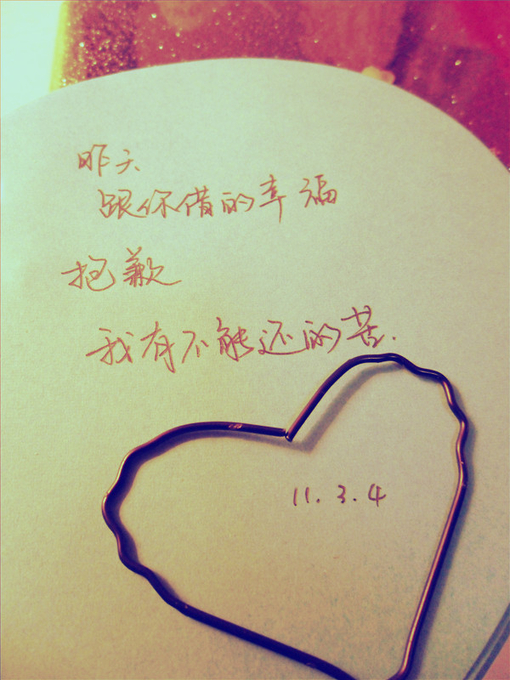 昨天
跟你借的幸福
抱歉
我有不能还的苦.
11.3.4